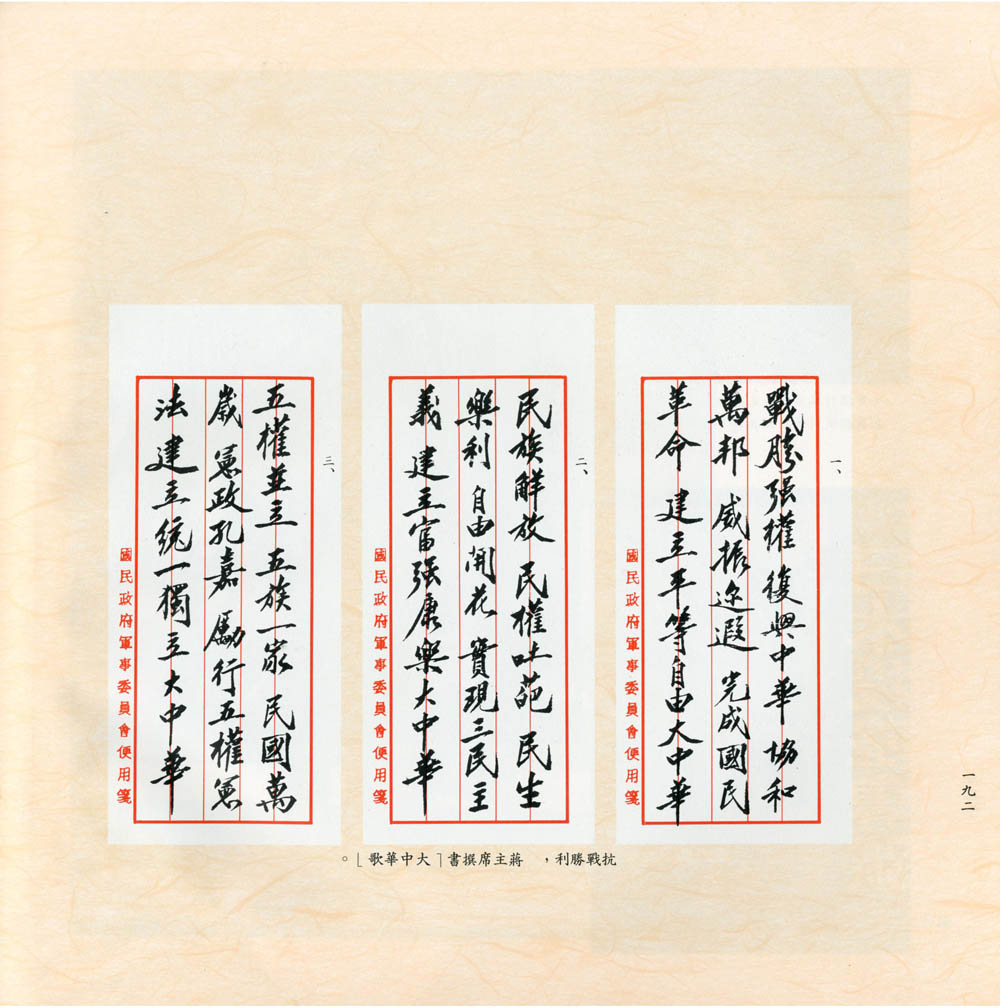 一、
戰勝强權 復興中華 協和
萬邦 威振迩遐 完成國民
革命 建立平等自由大中華
國民政府軍事委員會便用箋
二、
民族解放 民權吐葩 民生
樂利 自由開花 實現三民主
義 建立富强康樂大中華
國民政府軍事委員會便用箋
三、
五權並立 五族一家 民國萬
歲 憲政孔嘉 勵行五權憲
法 建立統一獨立大中華
國民政府軍事委員會便用箋
抗戰勝利， 蔣主席撰書「大中華歌」。
一九二